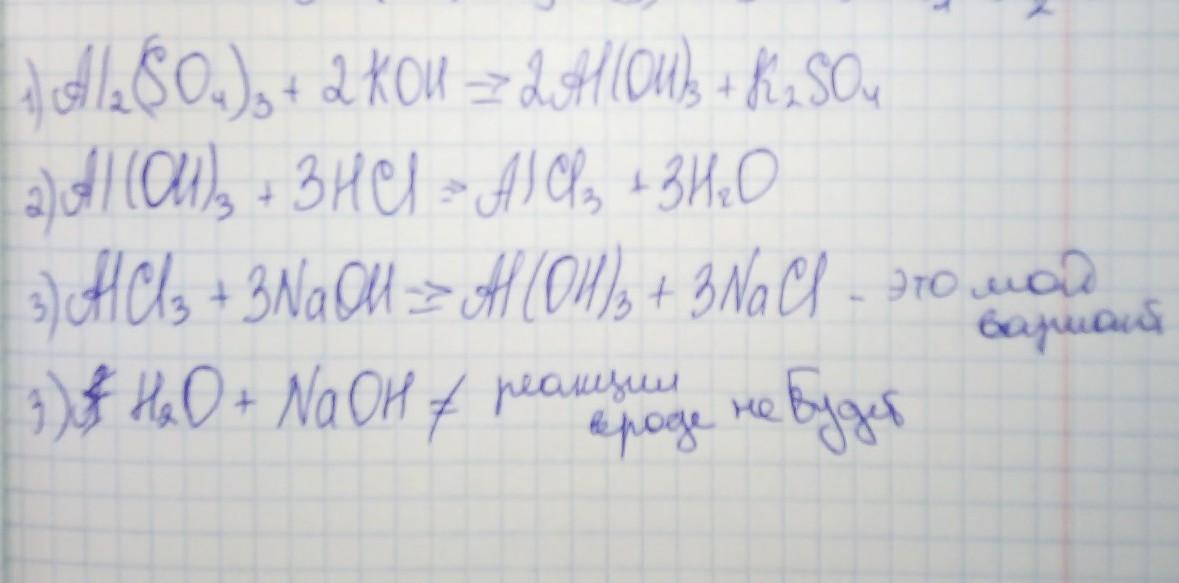 1) Al₂(SO₄)₃ + 2KOH => 2Al(OH)₃ + K₂SO₄
2) Al(OH)₃ + 3HCl => AlCl₃ + 3H₂O
3) AlCl₃ + 3NaOH => Al(OH)₃ + 3NaCl - это мой
вариант
3) H₂O + NaOH ≠ реакции
вроде не будет